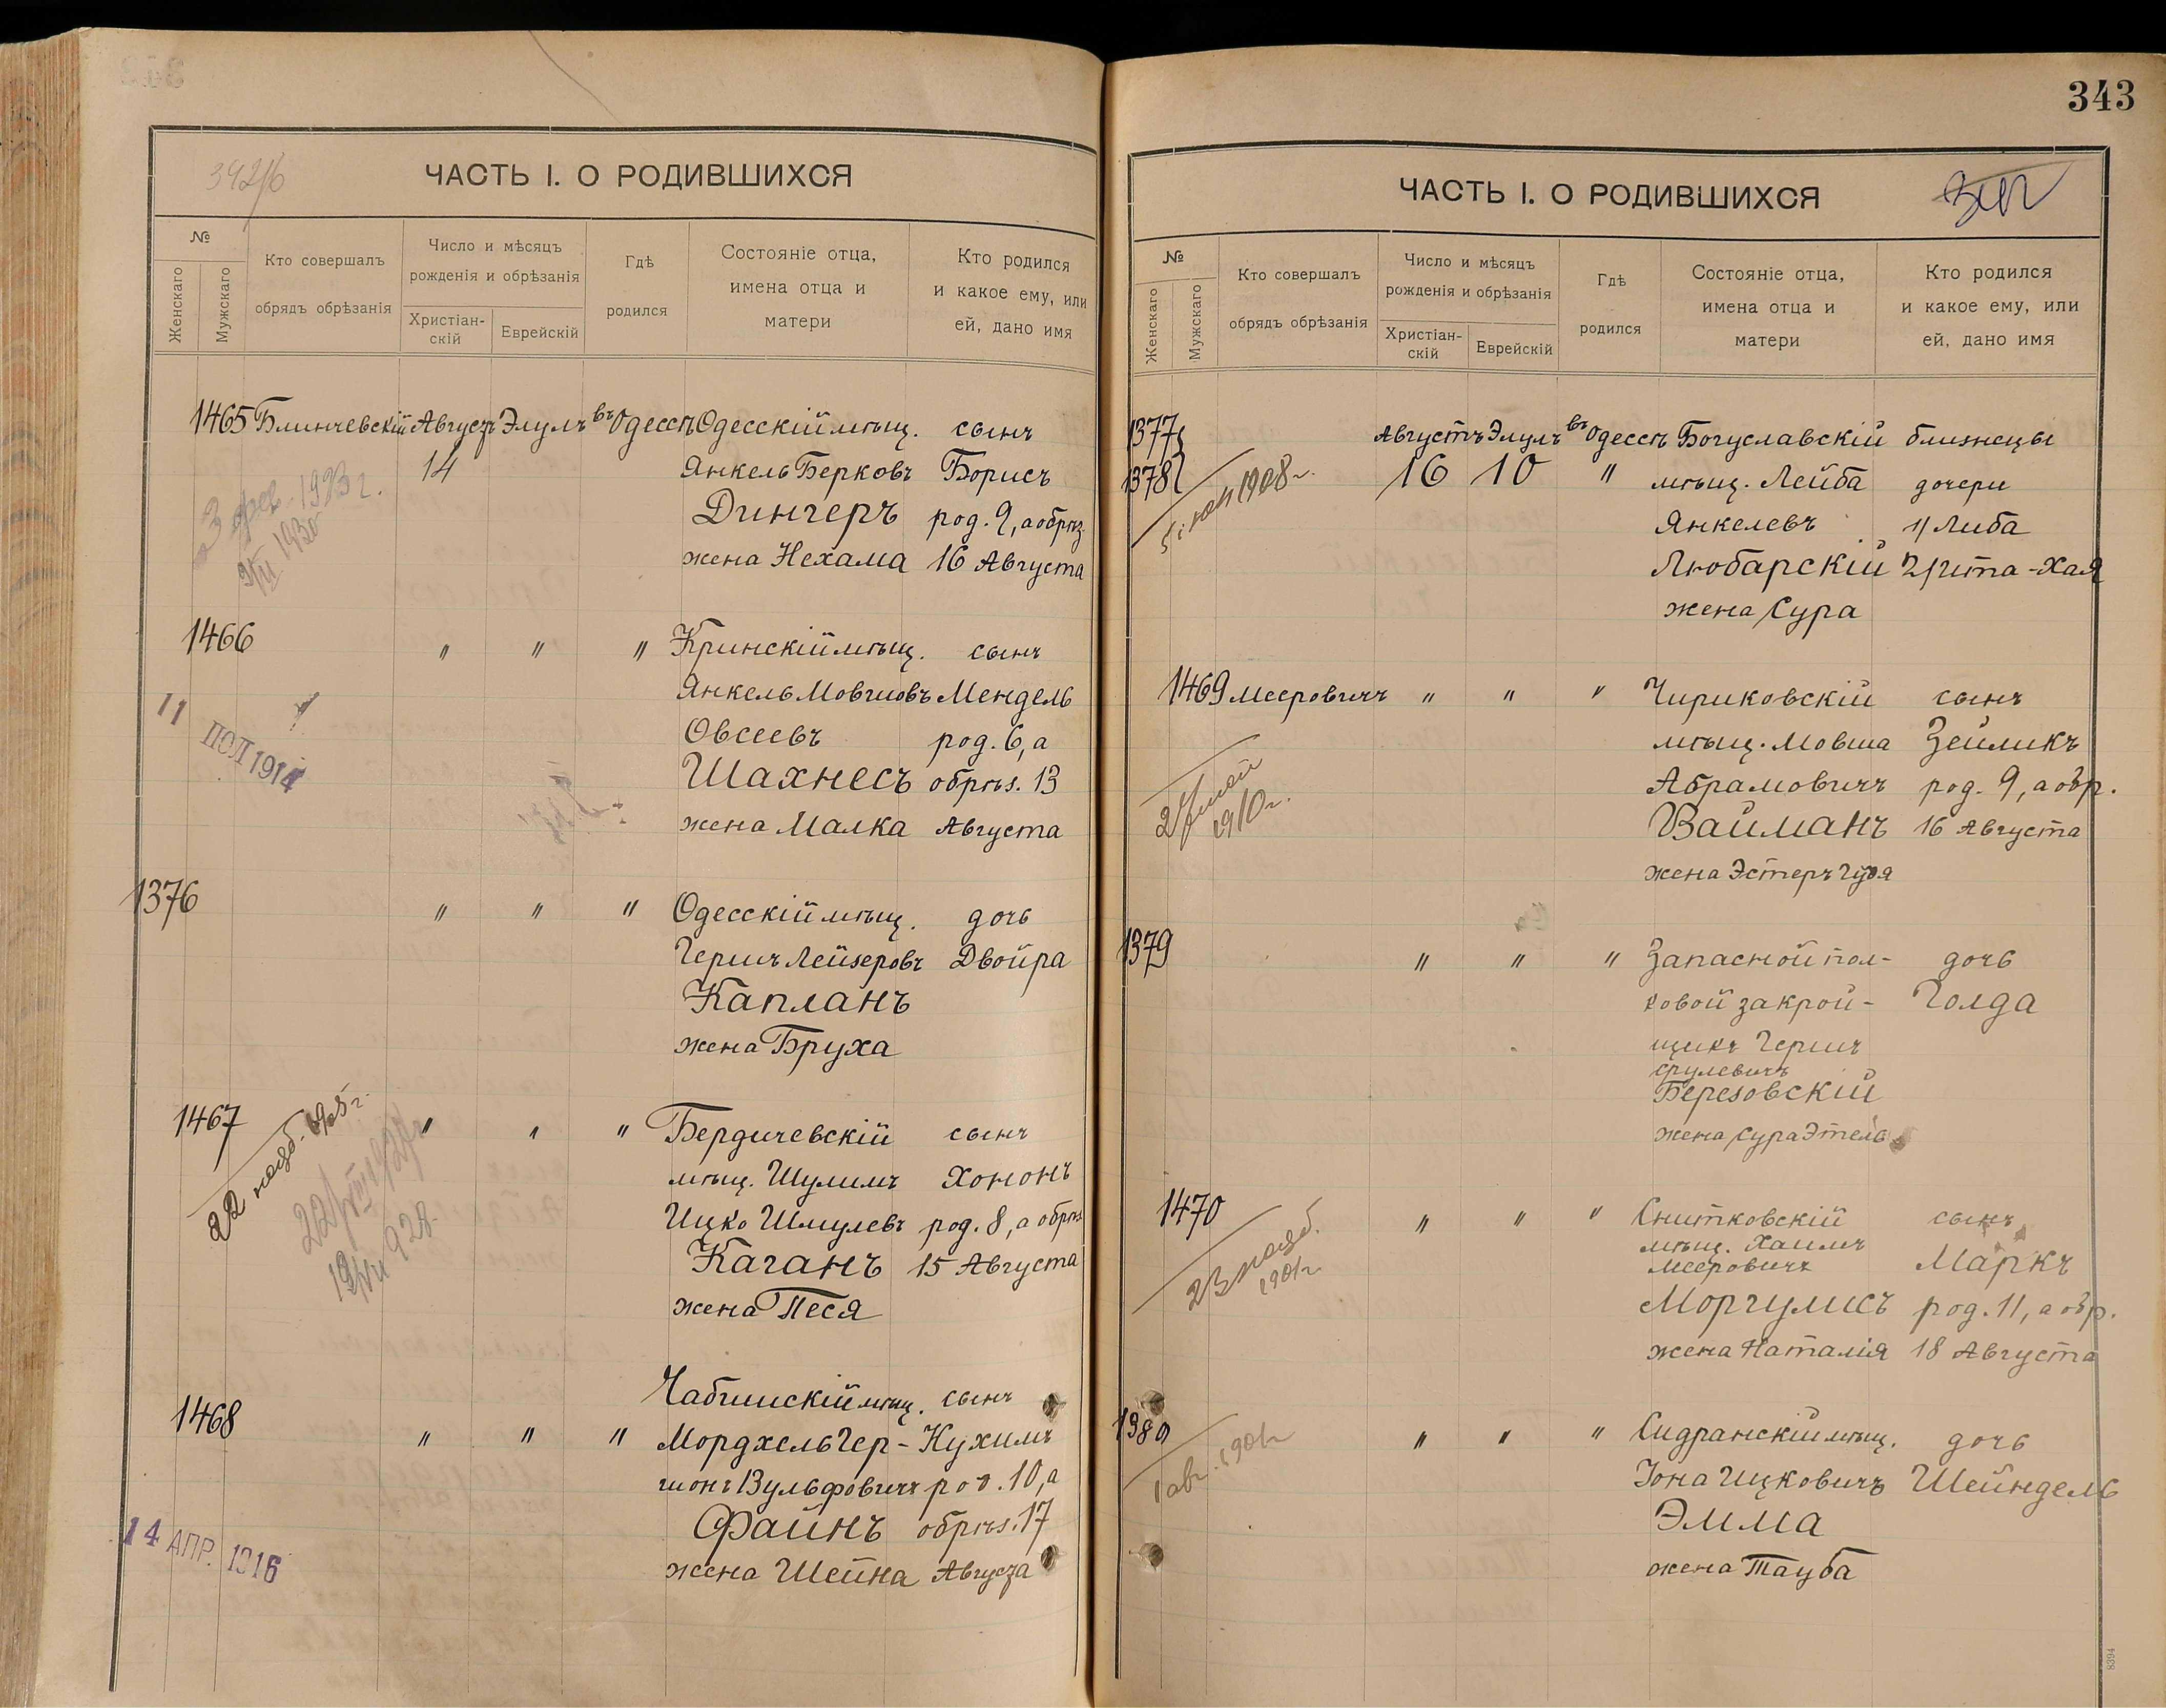 343
ЧАСТЬ I. О РОДИВШИХСЯ
№
Женскаго
Мужскаго
Кто совершалъ
обрядъ обрѣзанія
Число и мѣсяцъ
рожденія и обрѣзанія
Христіан-
скій
Еврейскій
Гдѣ
родился
Состояніе отца,
имена отца и
матери
Кто родился
и какое ему, или
ей, дано имя
1465 Блинчевскій Августъ Элулъ въ Одессѣ Одесскій мѣщ. сынъ
14 Янкель Берковъ Борисъ
Дингеръ род. 9, а обрѣз.
жена Нехама 16 Августа
1466 " " " Кринскій мѣщ. сынъ
Янкель Мовшовъ Мендель
Овсеевъ род. 6, а
Шахнесъ обрѣз. 13
жена Малка Августа
11 1914
1376 " " " Одесскій мѣщ. дочь
Гершъ Лейзеровъ Двойра
Капланъ
жена Бруха
1467 " " " Бердичевскій сынъ
мѣщ. Шулимъ Хононъ
Ицко Шмулевъ род. 8, а обрѣз
Каганъ 15 Августа
жена Песя
1468 " " " мѣщ. сынъ
Мордхель Гер- Нухимъ
шонъ Вульфовичъ род. 10, а
Файнъ обрѣз. 17
жена Шейна Августа
14 АПР. 1916
ЧАСТЬ I. О РОДИВШИХСЯ
№
Женскаго
Мужскаго
Кто совершалъ
обрядъ обрѣзанія
Число и мѣсяцъ
рожденія и обрѣзанія
Христіан-
скій
Еврейскій
Гдѣ
родился
Состояніе отца,
имена отца и
матери
Кто родился
и какое ему, или
ей, дано имя
1377 Августъ Элулъ въ Одессѣ Богуславскій близнецы
1378 16 10 " мѣщ. Лейба дочери
Янкелевъ 1/ Либа
Любарскій 2/ Ита-Хая
жена Сура
1469 Мееровичъ " " " Чириковскій сынъ
мѣщ. Мовша Зейликъ
Абрамовичъ род. 9, а обр.
Вайманъ 16 Августа
жена Эстеръ
27 май
1910г.
1379 " " " Запасной пол- дочь
ковой закрой- Голда
щикъ Гершъ
Срулевичъ
Березовскій
жена Сура Этель
1470 " " " Снитковскій сынъ
мѣщ. Хаимъ
Мееровичъ Маркъ
Моргулисъ род. 11, а обр.
жена Наталія 18 Августа
1380 " " " мѣщ. дочь
Іона Ицковичъ Шейндель
Эмма
жена Тауба
1 авг. 1901г
8394